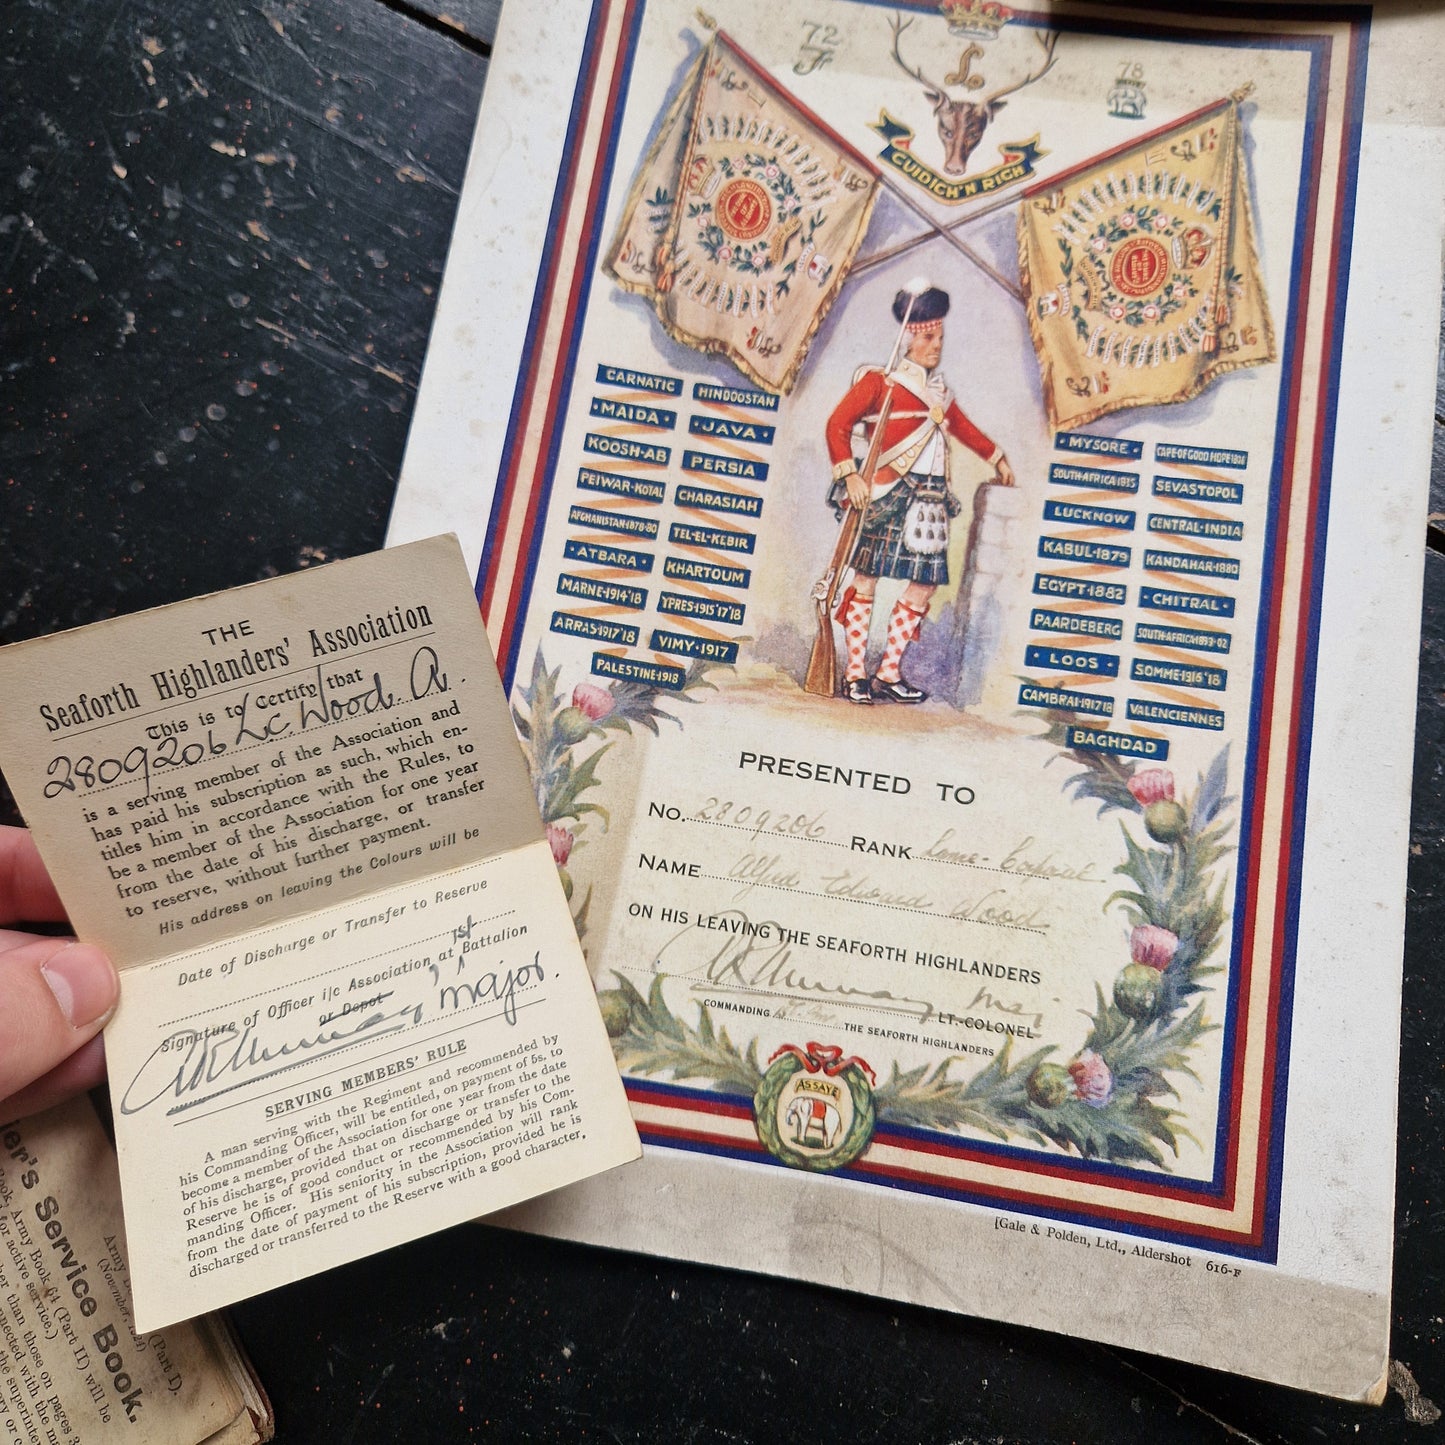 THE
Seaforth Highlanders' Association
This is to Certify that
2809206 L.C. Wood. A.
is a serving member of the Association and
has paid his subscription as such, which en-
titles him in accordance with the Rules, to
be a member of the Association for one year
from the date of his discharge, or transfer
to reserve, without further payment.
His address on leaving the Colours will be
Date of Discharge or Transfer to Reserve
1st
Signature of Officer i/c Association, at Battalion
or Depot
Major.
SERVING MEMBERS' RULE
A man serving with the Regiment and recommended by
his Commanding Officer, will be entitled, on payment of 5s, to
become a member of the Association for one year from the date
of his discharge, provided that on discharge or transfer to the
Reserve he is of good conduct or recommended by his Com-
manding Officer. His seniority in the Association will rank
from the date of payment of his subscription, provided he is
discharged or transferred to the Reserve with a good character.
Service Book.
Army
(Part I).
Book, Army Book 64 (Part II) will be
for active service.)
than those on pages 3
72
78
L
CUIDICH'N RIGH
CARNATIC
HINDOOSTAN
MAIDA
JAVA
KOOSH-AB
PERSIA
PEIWAR-KOTAL
CHARASIAH
AFGHANISTAN·1878-80
TEL-EL-KEBIR
ATBARA
KHARTOUM
MARNE·1914'18
YPRES·1915'17'18
ARRAS·1917'18
VIMY·1917
PALESTINE·1918
MYSORE
CAPE·OF·GOOD HOPE 1806
SOUTH·AFRICA·1835
SEVASTOPOL
LUCKNOW
CENTRAL·INDIA
KABUL·1879
KANDAHAR·1880
EGYPT·1882
CHITRAL
PAARDEBERG
SOUTH·AFRICA·1899-02
LOOS
SOMME·1916'18
CAMBRAI·1917'18
VALENCIENNES
BAGHDAD
PRESENTED TO
No. 2809206 RANK Lance-Corporal
NAME Alfred Edward Wood
ON HIS LEAVING THE SEAFORTH HIGHLANDERS
Maj
LT.-COLONEL
COMMANDING 1st Bn. THE SEAFORTH HIGHLANDERS
ASSAYE
[Gale & Polden, Ltd., Aldershot 616-F